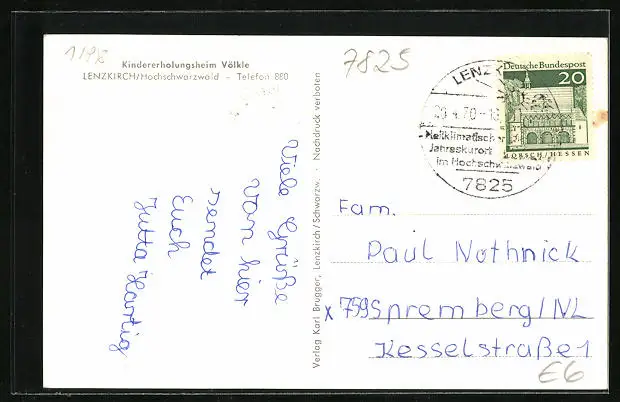 1198
Kindererholungsheim Völkle
LENZKIRCH/Hochschwarzwald - Telefon 880
Viele Grüße
vom hier
sendet
Euch
Jutta Hartig
Verlag Karl Brugger, Lenzkirch/Schwarzw. · Nachdruck verboten
7825
LENZK
20.4.70-18
Heilklimatischer
Jahreskurort
im Hochschwarzwald
7825
Deutsche Bundespost
20
LORSCH/HESSEN
Fam.
Paul Nothnick
x 759 Spremberg/NL
Kesselstraße 1
E6